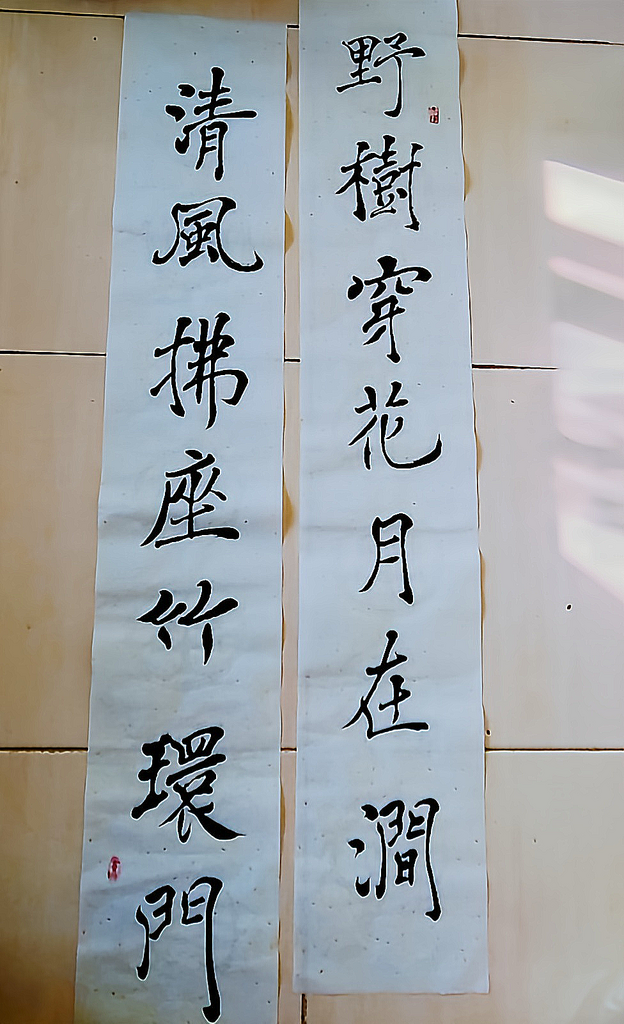 野樹穿花月在澗
清風拂座竹環門